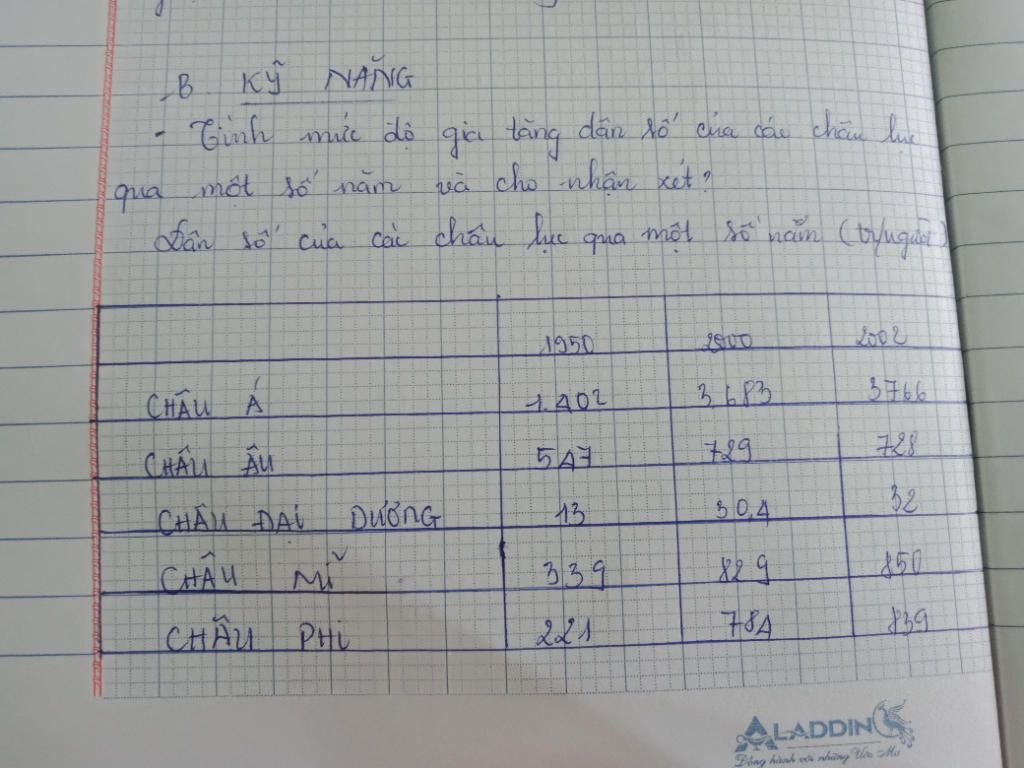 B. KỸ NĂNG
- Tính mức độ gia tăng dân số của các châu lục
qua một số năm và cho nhận xét?
Dân số của các châu lục qua một số năm (tr/người)
1950 2000 2002
CHÂU Á 1.402 3.683 3766
CHÂU ÂU 547 729 728
CHÂU ĐẠI DƯƠNG 13 30,4 32
CHÂU MĨ 339 829 850
CHÂU PHI 221 784 839
ALADDIN
Đồng hành với những Ước Mơ